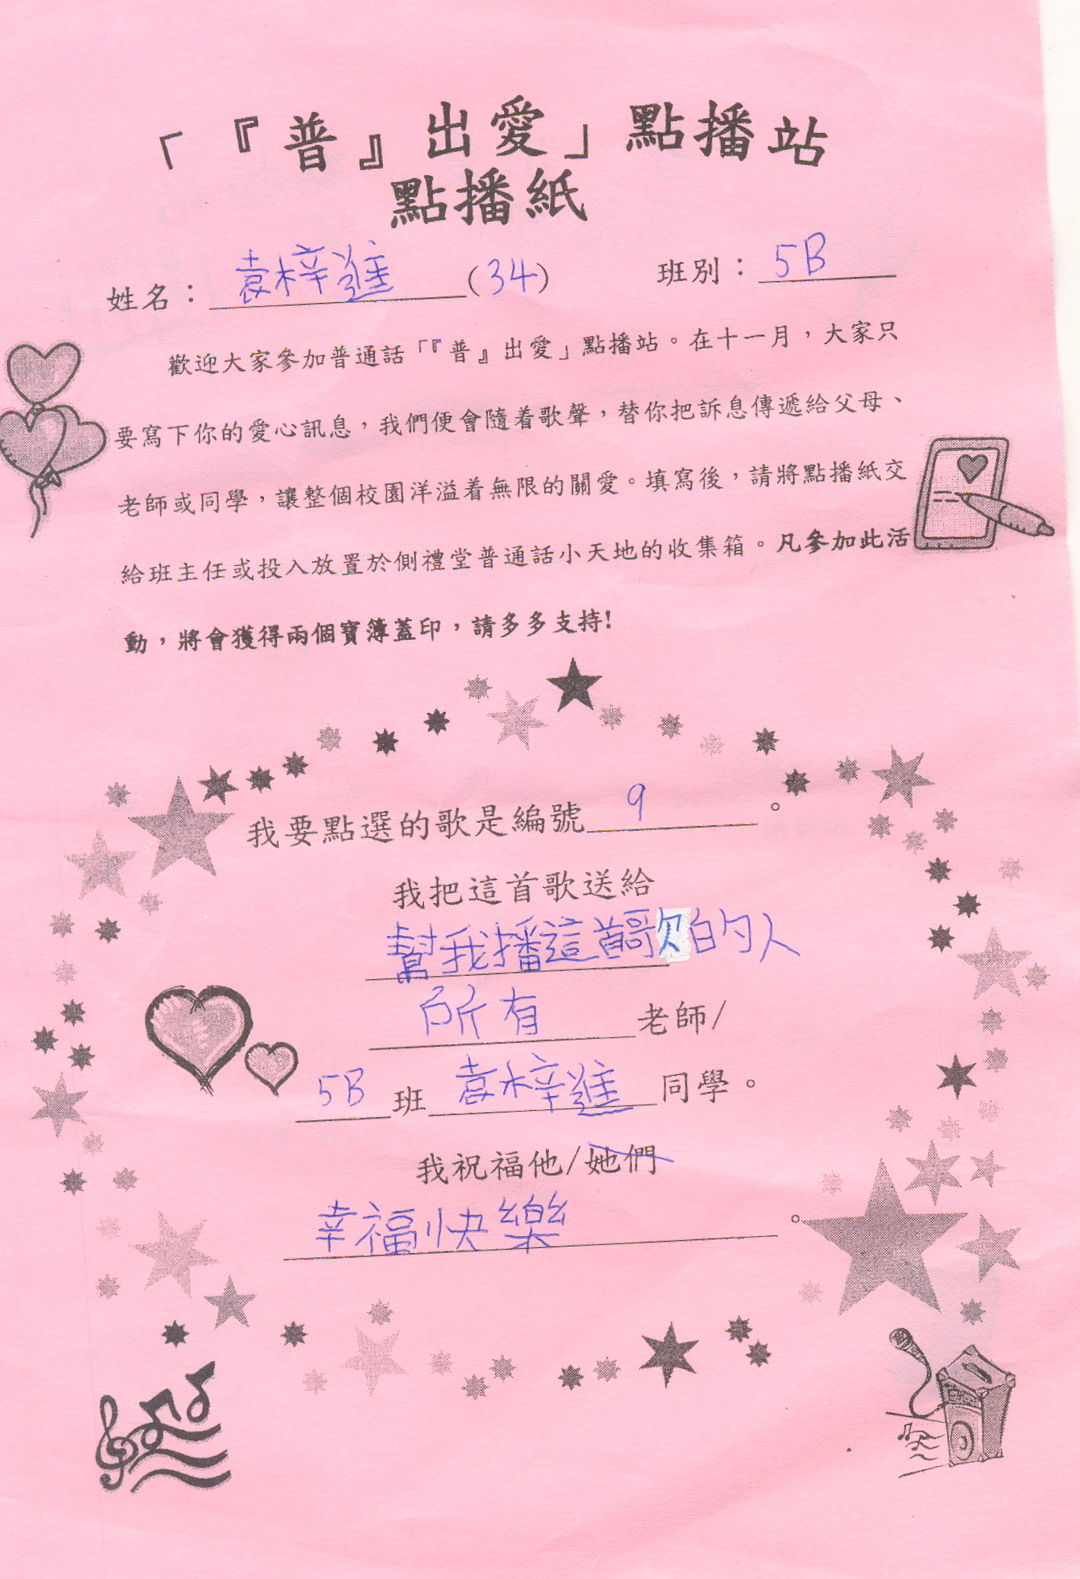 「『普』出愛」點播站
點播紙
姓名：袁梓進(34) 班別：5B
歡迎大家參加普通話「『普』出愛」點播站。在十一月，大家只
要寫下你的愛心訊息，我們便會隨着歌聲，替你把訴息傳遞給父母、
老師或同學，讓整個校園洋溢着無限的關愛。填寫後，請將點播紙交
給班主任或投入放置於側禮堂普通話小天地的收集箱。凡參加此活
動，將會獲得兩個寶簿蓋印，請多多支持!
我要點選的歌是編號9。
我把這首歌送給
幫我播這首歌的人
所有老師/
5B班袁梓進同學。
我祝福他/她們
幸福快樂。